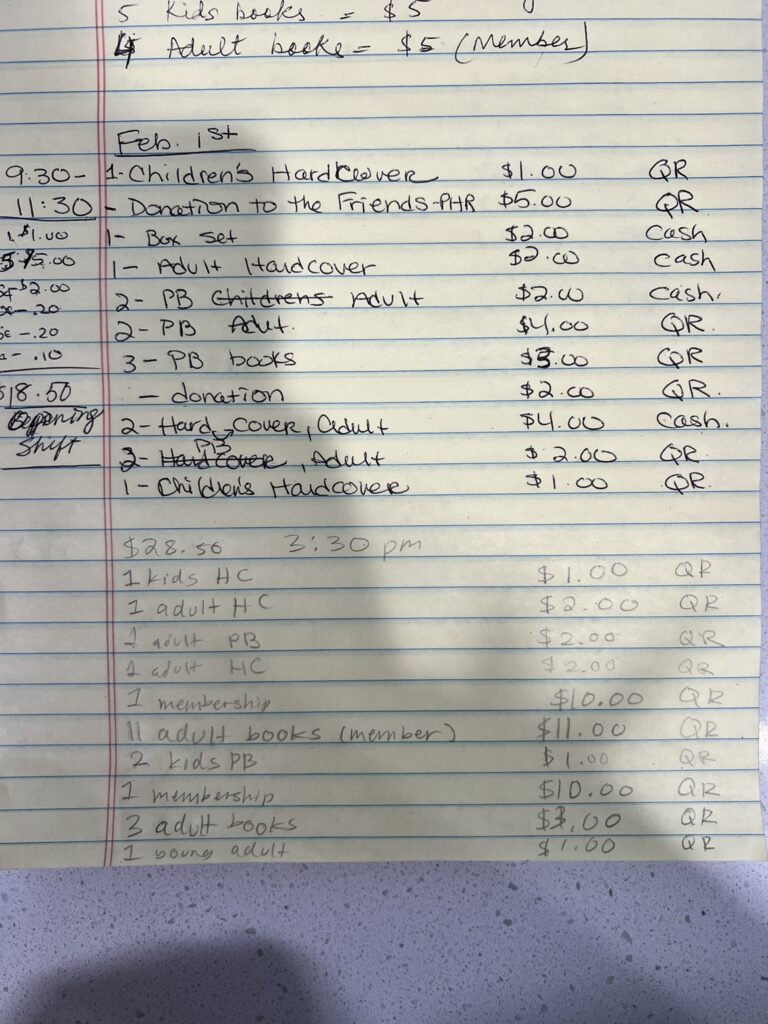 5 Kids books = $5
4 Adult books = $5 (Member)
Feb. 1st
9:30- 1- Children's Hardcover $1.00 QR
11:30 - Donation to the Friends-PHR $5.00 QR
$1.00 1- Box Set $2.00 Cash
5.00 1- Adult Hardcover $2.00 cash
$2.00 2- PB Childrens Adult $2.00 Cash.
-.20 2- PB Adut. $4.00 QR.
-.20 3- PB books $3.00 QR
-.10 - donation $2.00 QR.
$18.50 2- Hard cover, adult $4.00 Cash.
Opening PB
Shift 2- Hardcover, Adult $2.00 QR.
1- Children's Hardcover $1.00 QR.
$28.50 3:30 pm
1 kids HC $1.00 QR
1 adult HC $2.00 QR
1 adult PB $2.00 QR
1 adult HC $2.00 QR
1 membership $10.00 QR
11 adult books (member) $11.00 QR
2 kids PB $1.00 QR
1 membership $10.00 QR
3 adult books $3.00 QR
1 young adult $1.00 QR